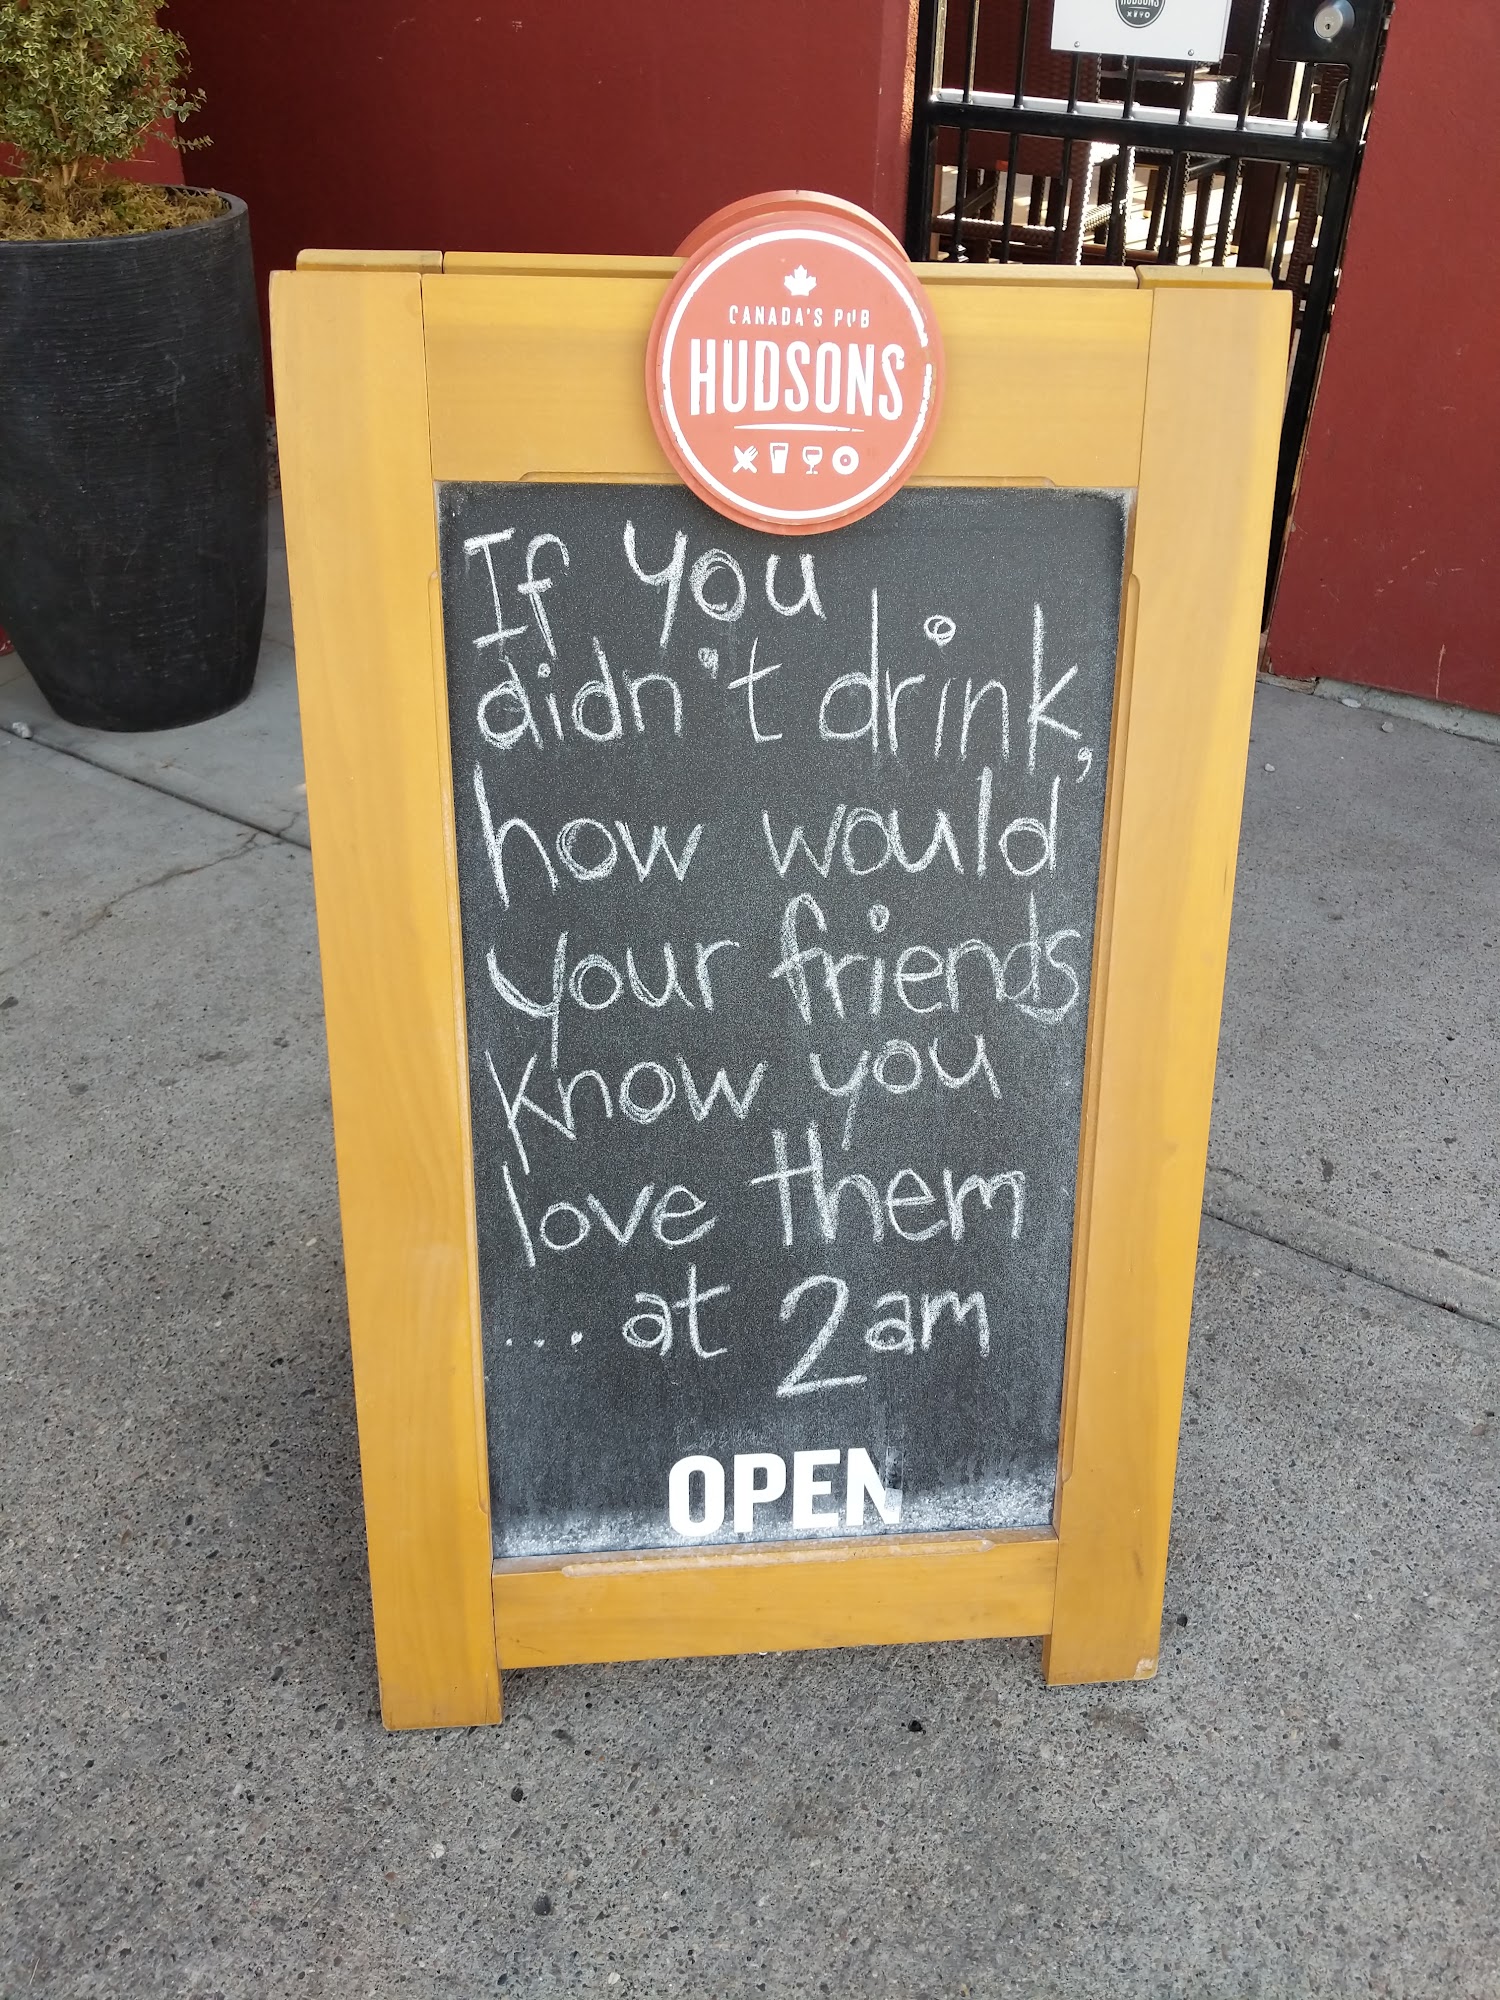 HUDSONS
CANADA'S PUB
HUDSONS
If you
didn't drink,
how would
your friends
know you
love them
... at 2am
OPEN